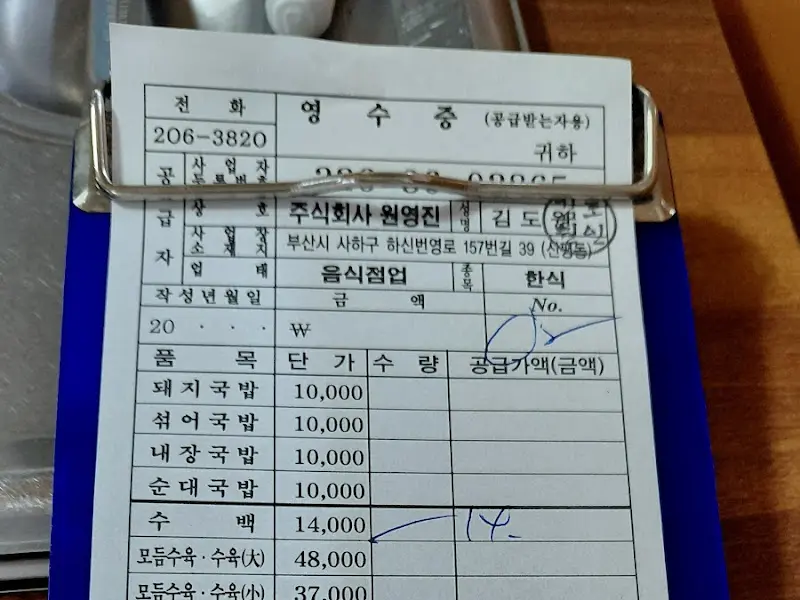 전 화 영 수 증 (공급받는자용)
206-3820 귀하
공 사업자
급 상 호 주식회사 원영진 성명 김도원
자 사업장소재지 부산시 사하구 하신번영로 157번길 39 (신평동)
업 태 음식점업 종목 한식
작성년월일 금 액 No.
20 . . . ₩
품 목 단 가 수 량 공급가액(금액)
돼지국밥 10,000
섞어국밥 10,000
내장국밥 10,000
순대국밥 10,000
수 백 14,000 14.
모듬수육·수육(大) 48,000
모듬수육·수육(小) 37,000